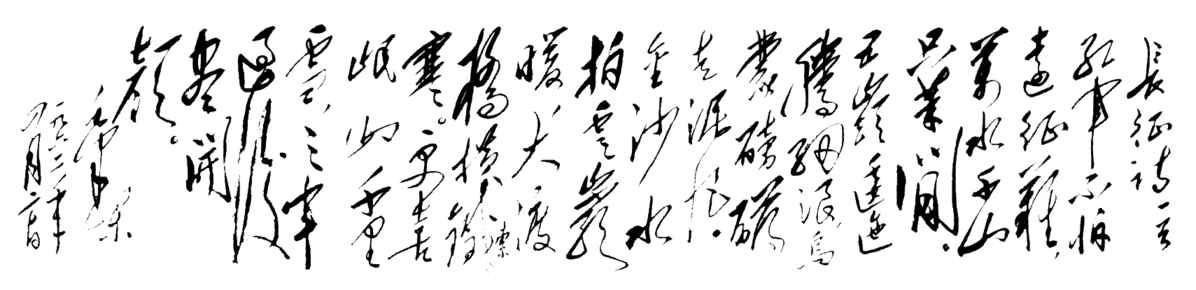 長征詩一首
紅軍不怕
遠征難,
萬水千山
只等閒。
五嶺逶迤
騰細浪,烏
蒙磅礴
走泥丸。
金沙水
拍雲巖
暖,大渡
橋橫鐵索
寒。更喜
岷山千里
雪,三軍
過後
盡開
顏。
毛澤東
一九六二年
四月二十日